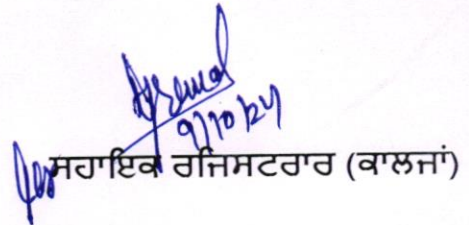 9/10/24
ਸਹਾਇਕ ਰਜਿਸਟਰਾਰ (ਕਾਲਜਾਂ)